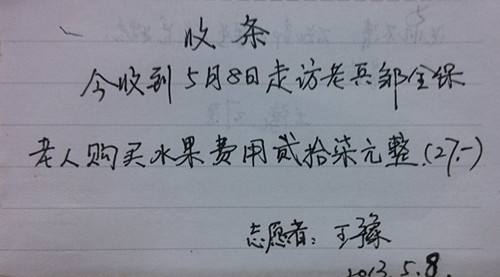 收条
今收到5月8日走访老兵邹全保
老人购买水果费用贰拾柒元整.(27.-)
志愿者: 王豫
2013.5.8.